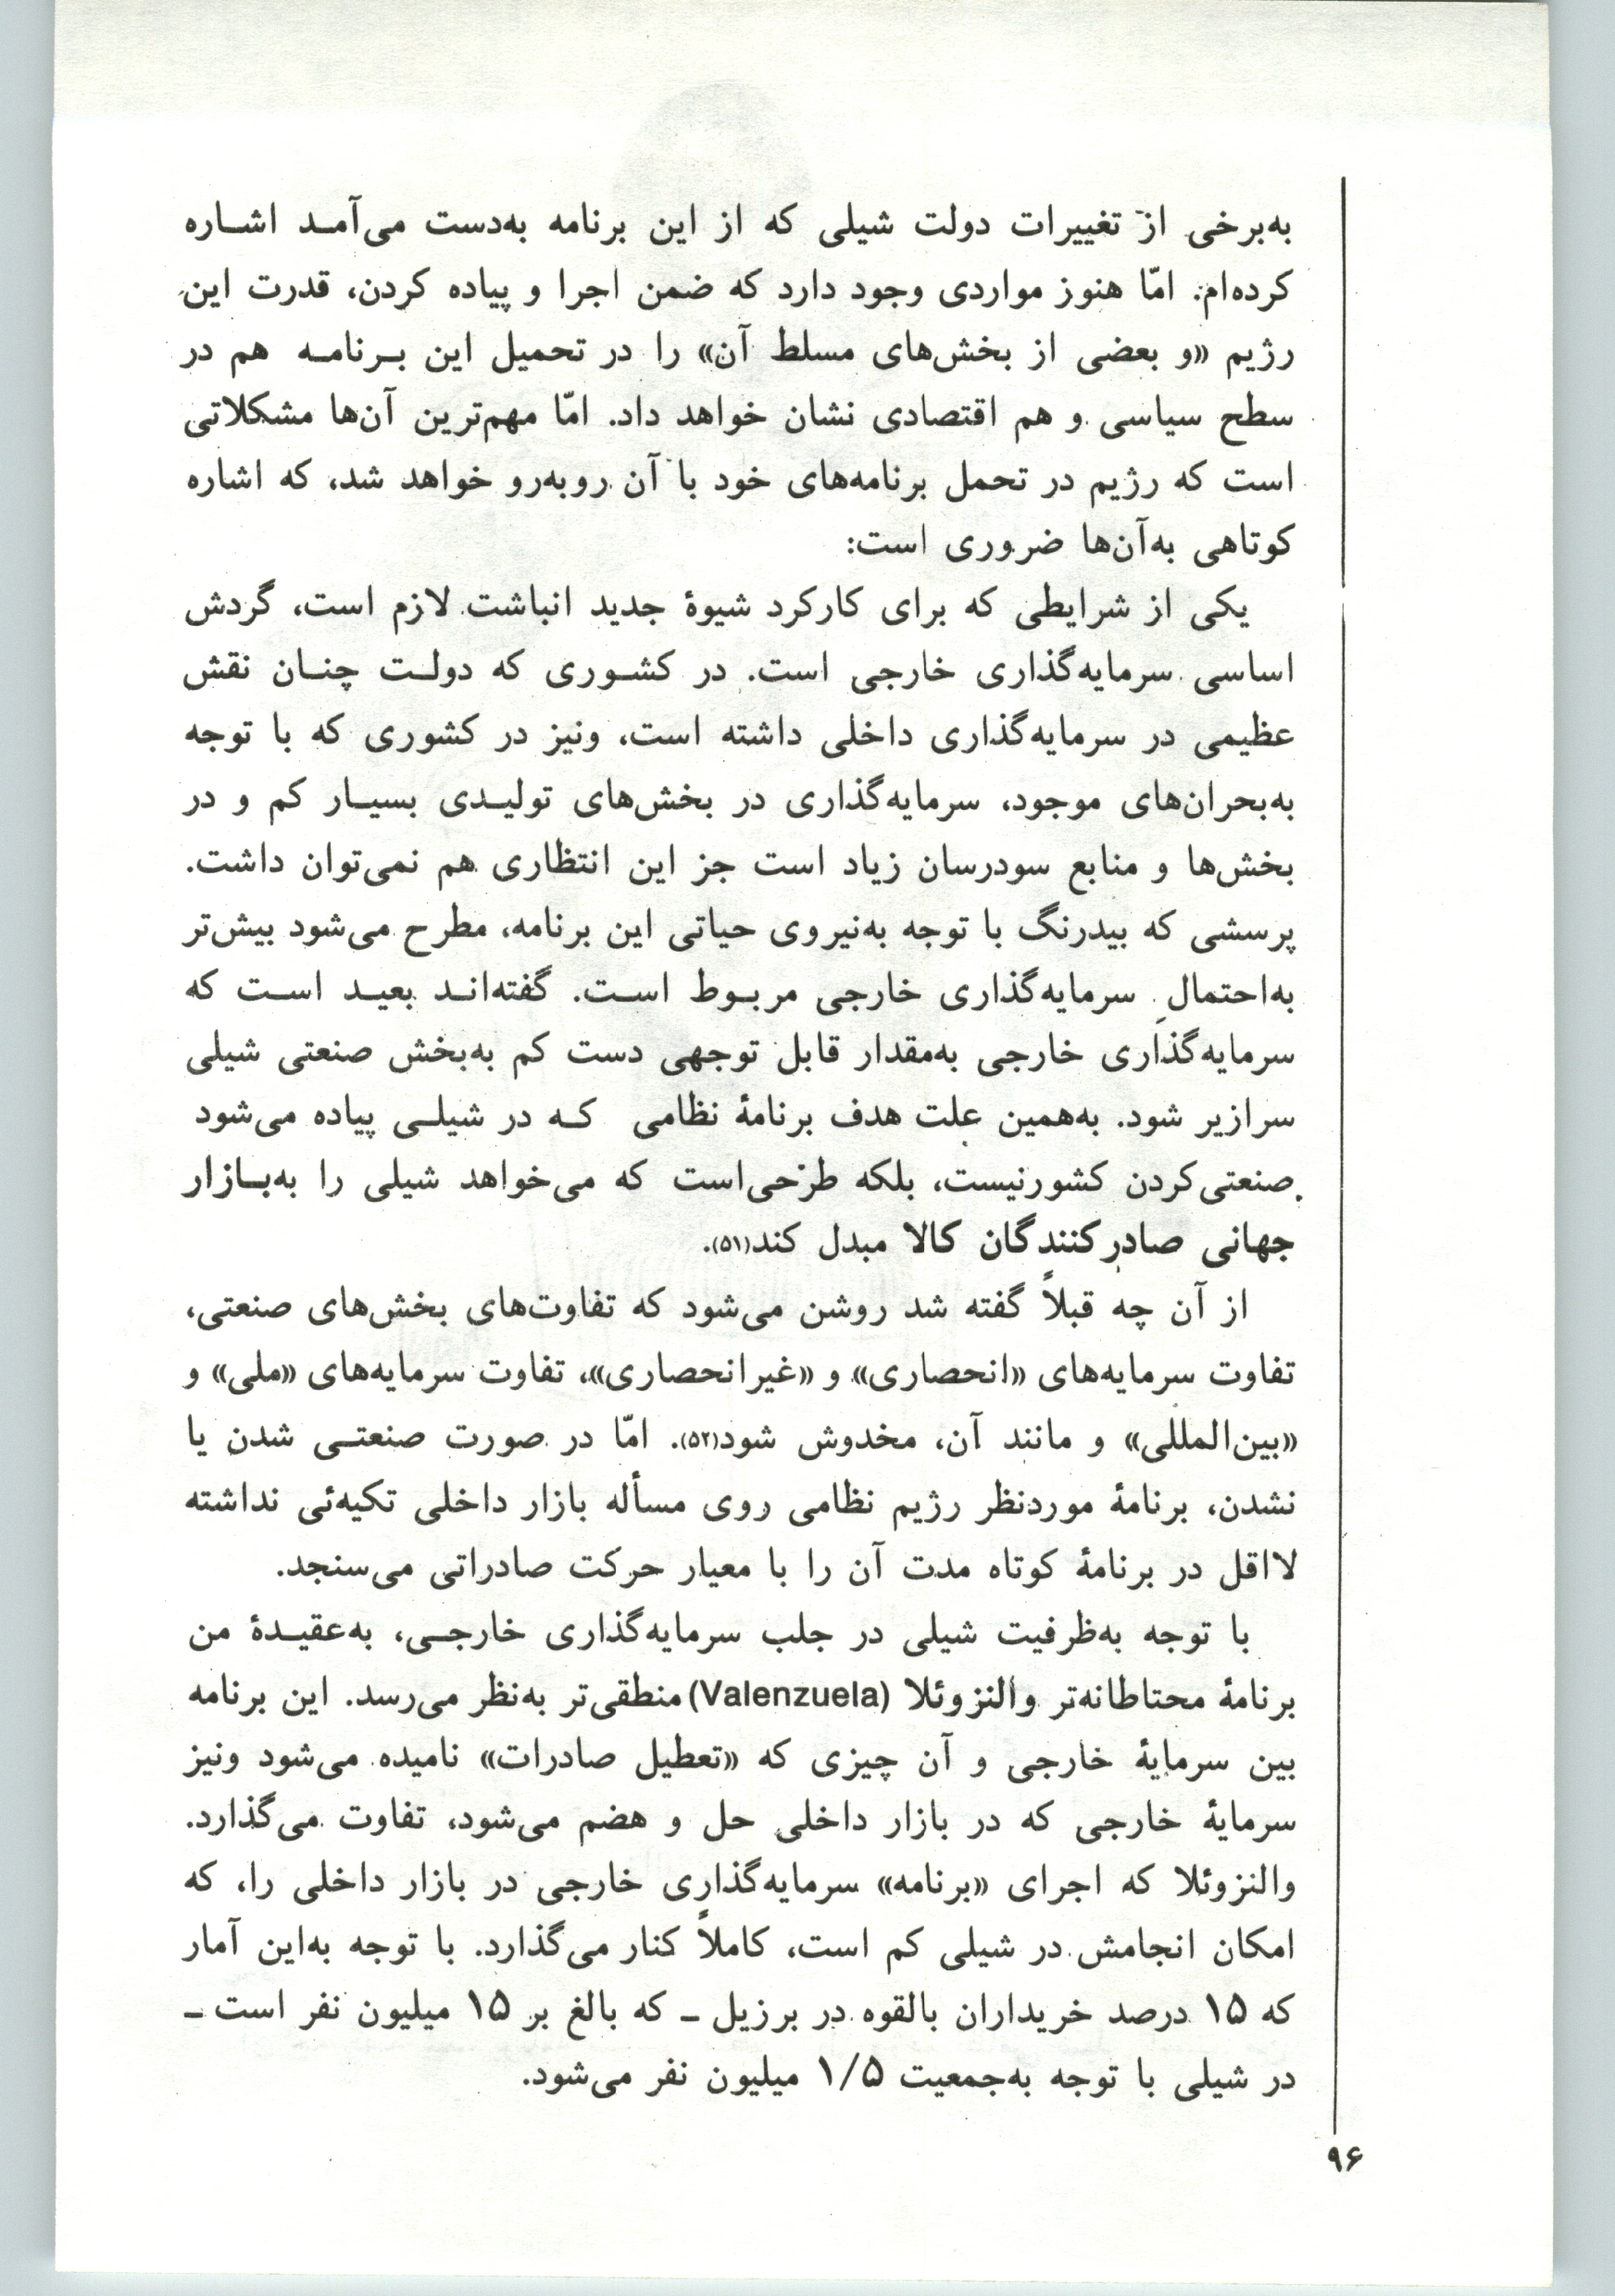 به‌برخی از تغییرات دولت شیلی که از این برنامه به‌دست می‌آمد اشاره
کرده‌ام. امّا هنوز مواردی وجود دارد که ضمن اجرا و پیاده کردن، قدرت این
رژیم «و بعضی از بخش‌های مسلط آن» را در تحمیل این برنامه هم در
سطح سیاسی و هم اقتصادی نشان خواهد داد. امّا مهم‌ترین آن‌ها مشکلاتی
است که رژیم در تحمل برنامه‌های خود با آن روبه‌رو خواهد شد، که اشاره
کوتاهی به‌آن‌ها ضروری است:
یکی از شرایطی که برای کارکرد شیوهٔ جدید انباشت لازم است، گردش
اساسی سرمایه‌گذاری خارجی است. در کشوری که دولت چنان نقش
عظیمی در سرمایه‌گذاری داخلی داشته است، ونیز در کشوری که با توجه
به‌بحران‌های موجود، سرمایه‌گذاری در بخش‌های تولیدی بسیار کم و در
بخش‌ها و منابع سودرسان زیاد است جز این انتظاری هم نمی‌توان داشت.
پرسشی که بیدرنگ با توجه به‌نیروی حیاتی این برنامه، مطرح می‌شود بیش‌تر
به‌احتمال سرمایه‌گذاری خارجی مربوط است. گفته‌اند بعید است که
سرمایه‌گذاری خارجی به‌مقدار قابل توجهی دست کم به‌بخش صنعتی شیلی
سرازیر شود. به‌همین علت هدف برنامهٔ نظامی که در شیلی پیاده می‌شود
صنعتی‌کردن کشورنیست، بلکه طرحی‌است که می‌خواهد شیلی را به‌بازار
جهانی صادرکنندگان کالا مبدل کند(۵۱).
از آن چه قبلاً گفته شد روشن می‌شود که تفاوت‌های بخش‌های صنعتی،
تفاوت سرمایه‌های «انحصاری» و «غیرانحصاری»، تفاوت سرمایه‌های «ملی» و
«بین‌المللی» و مانند آن، مخدوش شود(۵۲). امّا در صورت صنعتی شدن یا
نشدن، برنامهٔ موردنظر رژیم نظامی روی مسأله بازار داخلی تکیه‌ئی نداشته
لااقل در برنامهٔ کوتاه مدت آن را با معیار حرکت صادراتی می‌سنجد.
با توجه به‌ظرفیت شیلی در جلب سرمایه‌گذاری خارجی، به‌عقیدهٔ من
برنامهٔ محتاطانه‌تر والنزوئلا (Valenzuela) منطقی‌تر به‌نظر می‌رسد. این برنامه
بین سرمایهٔ خارجی و آن چیزی که «تعطیل صادرات» نامیده می‌شود ونیز
سرمایهٔ خارجی که در بازار داخلی حل و هضم می‌شود، تفاوت می‌گذارد.
والنزوئلا که اجرای «برنامه» سرمایه‌گذاری خارجی در بازار داخلی را، که
امکان انجامش در شیلی کم است، کاملاً کنار می‌گذارد. با توجه به‌این آمار
که ۱۵ درصد خریداران بالقوه در برزیل ـ که بالغ بر ۱۵ میلیون نفر است ـ
در شیلی با توجه به‌جمعیت ۱/۵ میلیون نفر می‌شود.
۹۶